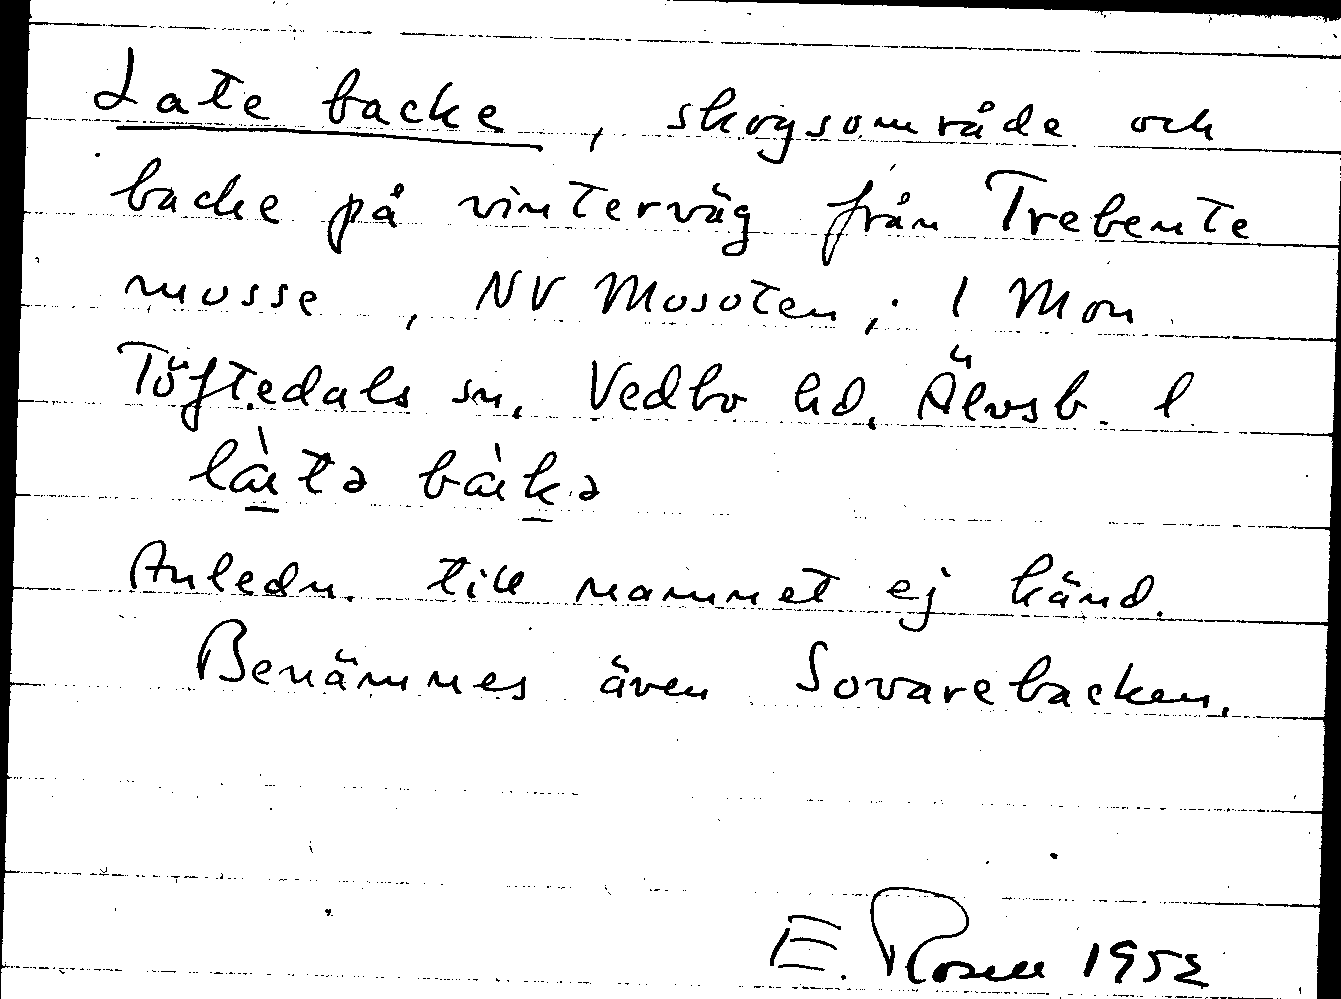 Late backe, skogsområde och
backe på vinterväg från Trebente
mosse, NV Mosoten, 1 Mon
Töftedals sn, Vedbo hd, Älvsb. l
Anledn. till namnet ej känd.
Benämnes även Sovarebacken.
E. 1952